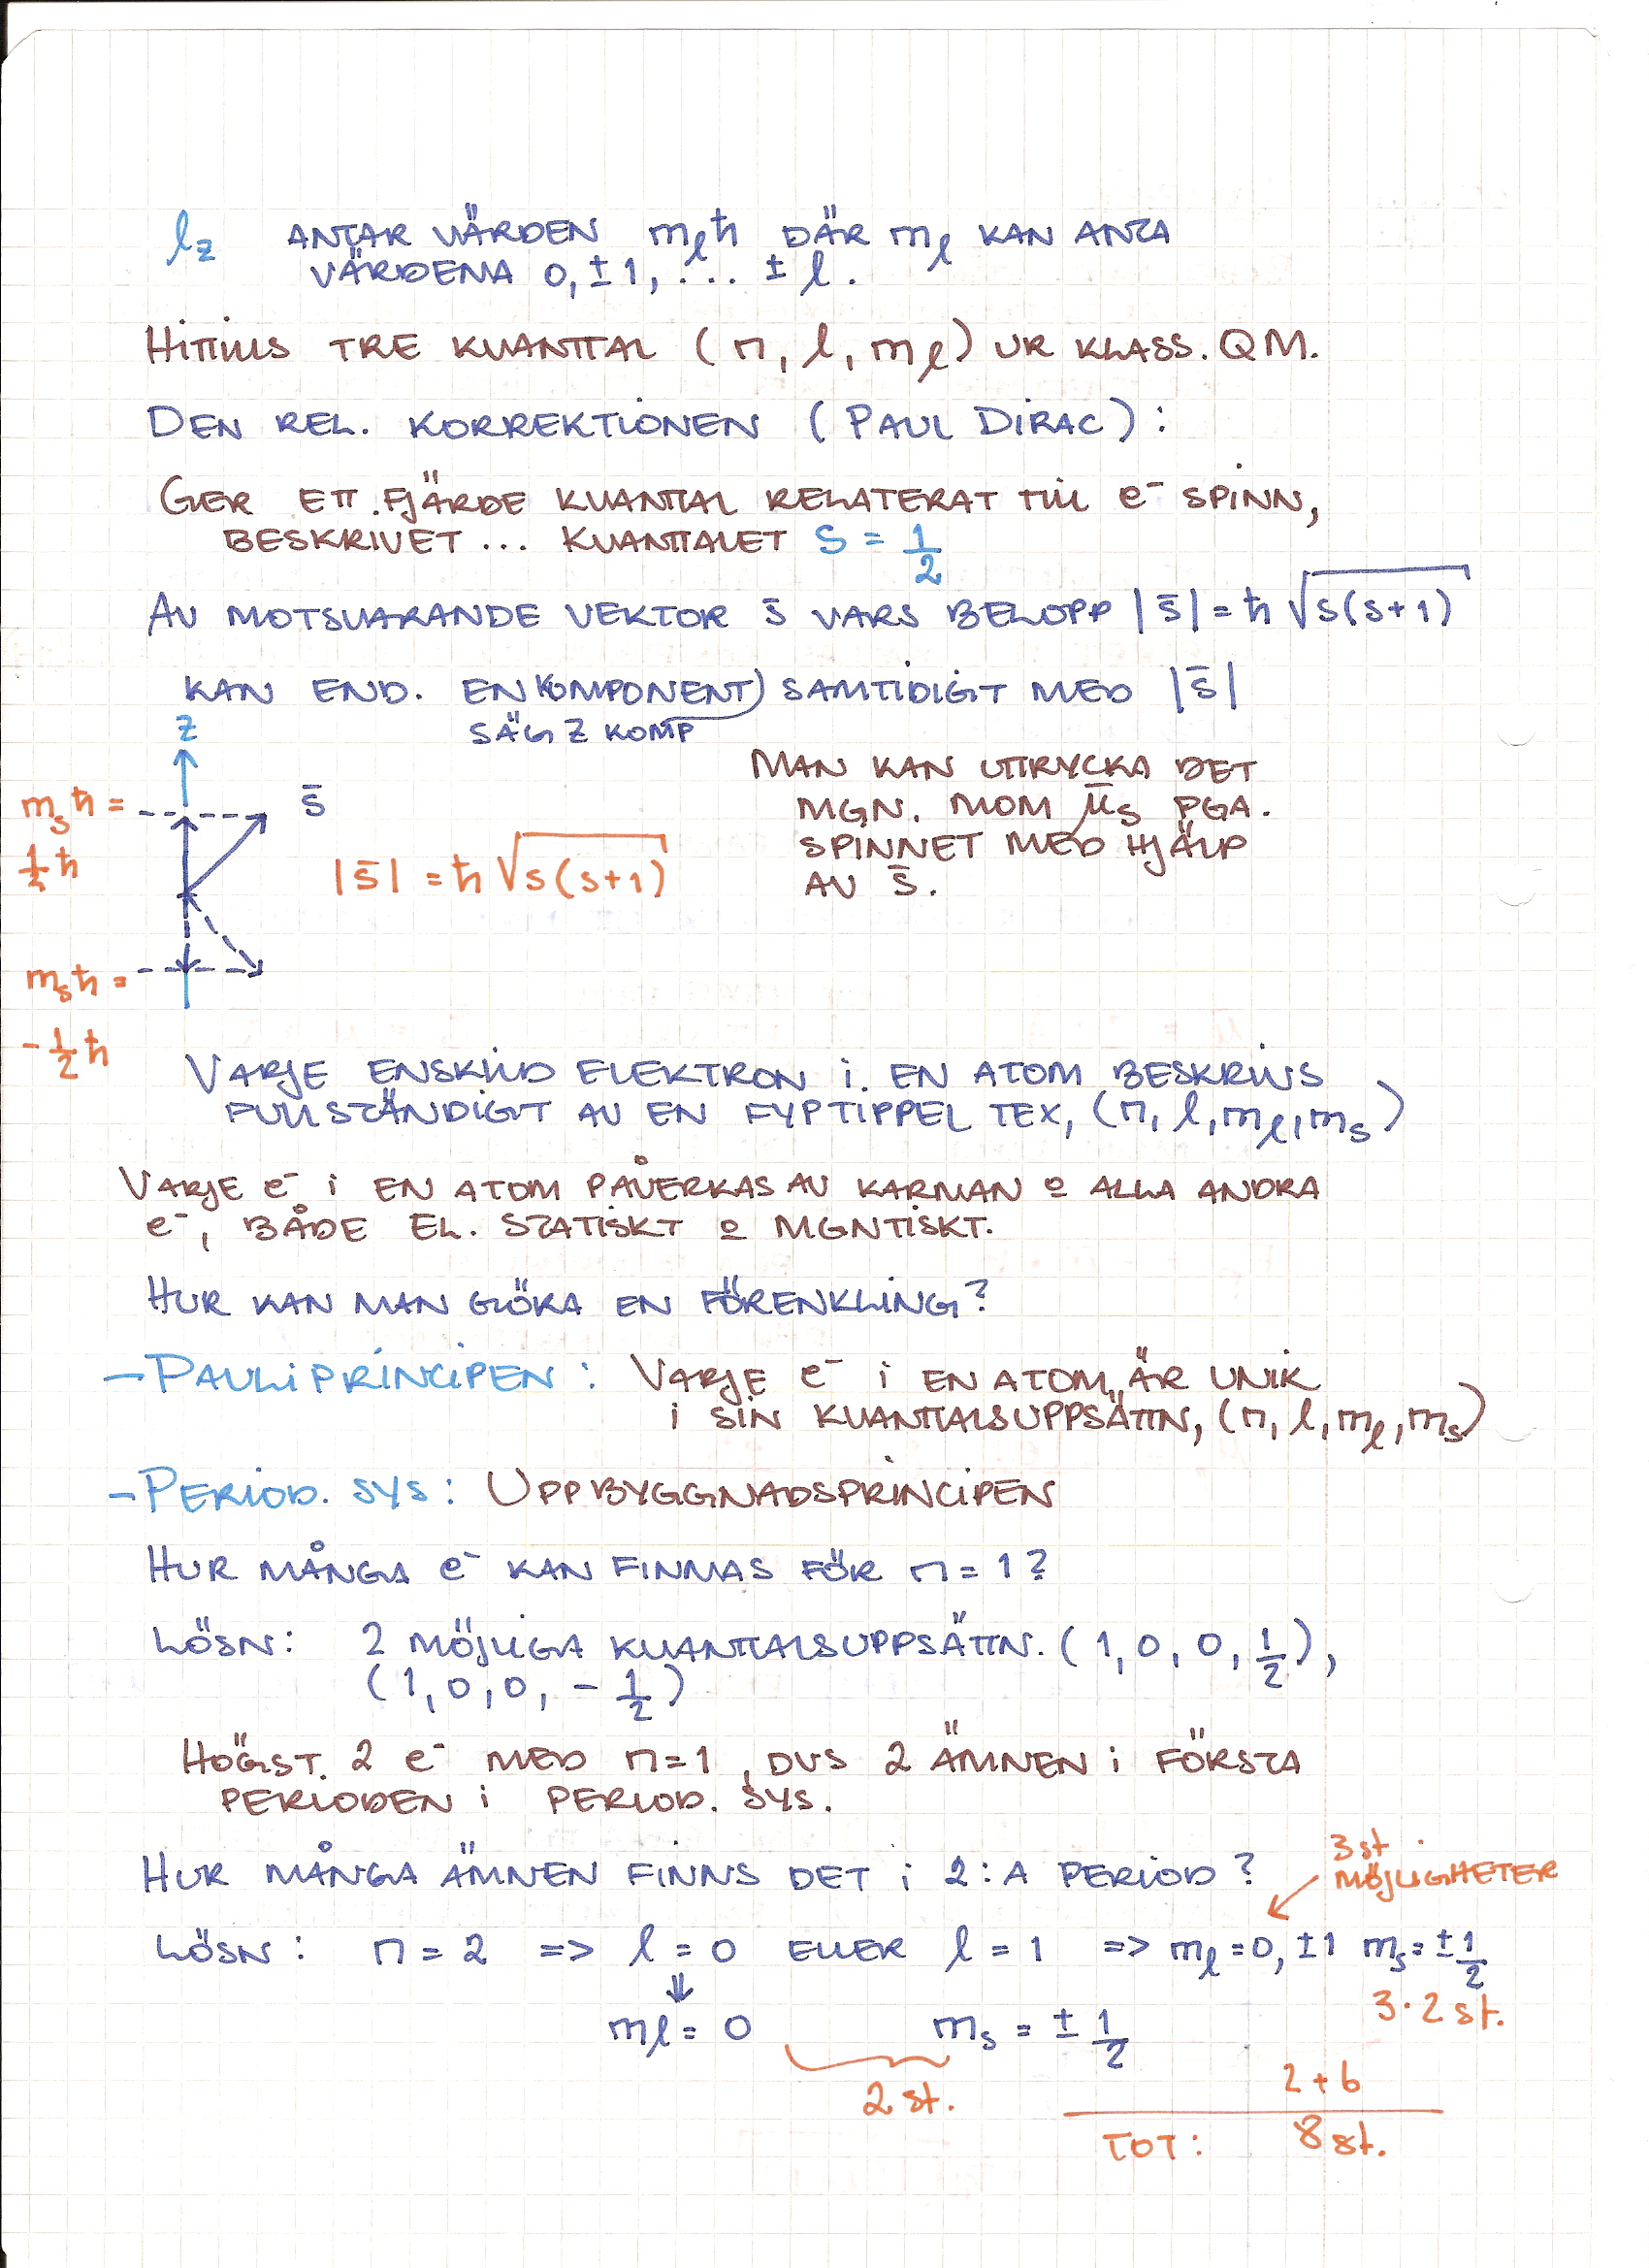 lz ANTAR VÄRDEN mlħ DÄR ml KAN ANTA
VÄRDENA 0, ±1, ... ± l.
HITTILLS TRE KVANTTAL (n, l, ml) UR KLASS. QM.
DEN REL. KORREKTIONEN (PAUL DIRAC):
GER ETT FJÄRDE KVANTTAL RELATERAT TILL e⁻ SPINN,
BESKRIVET ... KVANTTALET S = 1/2
AV MOTSVARANDE VEKTOR s̄ VARS BELOPP |s̄| = ħ √s(s+1)
KAN END. EN KOMPONENT) SAMTIDIGT MED |s̄|
SÄG Z KOMP
Z
msħ =
1/2 ħ
s̄
|s̄| = ħ √s(s+1)
msħ =
-1/2 ħ
MAN KAN UTTRYCKA DET
MGN. MOM μ̄s PGA.
SPINNET MED HJÄLP
AV s̄.
VARJE ENSKILD ELEKTRON i EN ATOM BESKRIVS
FULLSTÄNDIGT AV EN FYPTIPPEL TEX, (n, l, ml, ms)
VARJE e⁻ i EN ATOM PÅVERKAS AV KÄRNAN o ALLA ANDRA
e⁻, BÅDE EL. STATISKT o MGNTISKT.
HUR KAN MAN GÖRA EN FÖRENKLING?
- PAULIPRINCIPEN: VARJE e⁻ i EN ATOM ÄR UNIK
i SIN KVANTTALSUPPSÄTTN, (n, l, ml, ms)
- PERIOD. SYS: UPPBYGGNADSPRINCIPEN
HUR MÅNGA e⁻ KAN FINNAS FÖR n = 1?
LÖSN: 2 MÖJLIGA KVANTTALSUPPSÄTTN. (1, 0, 0, 1/2),
(1, 0, 0, - 1/2)
HÖGST. 2 e⁻ MED n=1, DVS 2 ÄMNEN i FÖRSTA
PERIODEN i PERIOD. SYS.
HUR MÅNGA ÄMNEN FINNS DET i 2:A PERIOD?
3 st
MÖJLIGHETER
LÖSN: n = 2 => l = 0 ELLER l = 1 => ml = 0, ±1 ms = ±1/2
3·2 st.
⇓
ml = 0 ms = ± 1/2
2 st.
2+6
TOT: 8 st.